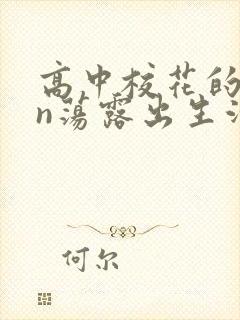 高中校花的
n荡露出生活
何尔